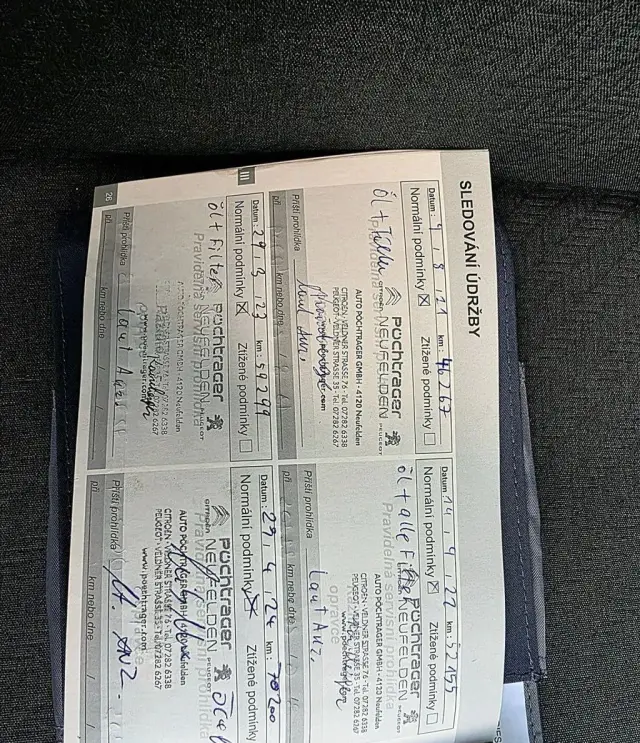 SLEDOVÁNÍ ÚDRŽBY
Datum: 9 / 8 / 21 km: 46267
Normální podmínky ☒ Ztížené podmínky ☐
Öl +
Pöchtrager
CITROËN NEUFELDEN PEUGEOT
AUTO PÖCHTRAGER GMBH · 4120 Neufelden
CITROEN · VELDNER STRASSE 76 · Tel. 07282 6338
PEUGEOT · VELDNER STRASSE 35 · Tel. 07282 6267
Příští prohlídka Laut Anz.
při km nebo dne / /
Datum: 14 / 9 / 22 km:
Normální podmínky ☒ Ztížené podmínky ☐
Öl + alle Filter
Pravidelná servisní
Pöchtrager
NEUFELDEN
AUTO PÖCHTRAGER GMBH · 4120 Neufelden
CITROEN · VELDNER STRASSE 76 · Tel. 07282 6338
PEUGEOT · VELDNER STRASSE 35 · Tel. 07282 6267
opravce
Příští prohlídka Laut Anz.
při km nebo dne / /
III
Datum: 29 / 3 / 23 km:
Normální podmínky ☒ Ztížené podmínky ☐
Öl + Filter
Pravidelná servisní prohlídka
Pöchtrager
CITROËN NEUFELDEN PEUGEOT
AUTO PÖCHTRAGER GMBH · 4120 Neufelden
CITROEN · VELDNER STRASSE 76 · Tel. 07282 6338
PEUGEOT · VELDNER STRASSE 35 · Tel. 07282 6267
www.poechtrager.com
Příští prohlídka Laut Anz
při km nebo dne / /
Datum: 29 / 4 / 24 km: 78200
Normální podmínky ☒ Ztížené podmínky
Pravidelná servisní prohlídka
Pöchtrager
CITROËN NEUFELDEN PEUGEOT
AUTO PÖCHTRAGER GMBH · 4120 Neufelden
CITROEN · VELDNER STRASSE 76 · Tel. 07282 6338
PEUGEOT · VELDNER STRASSE 35 · Tel. 07282 6267
www.poechtrager.com
Příští prohlídka lt. ANZ.
při km nebo dne / /
26